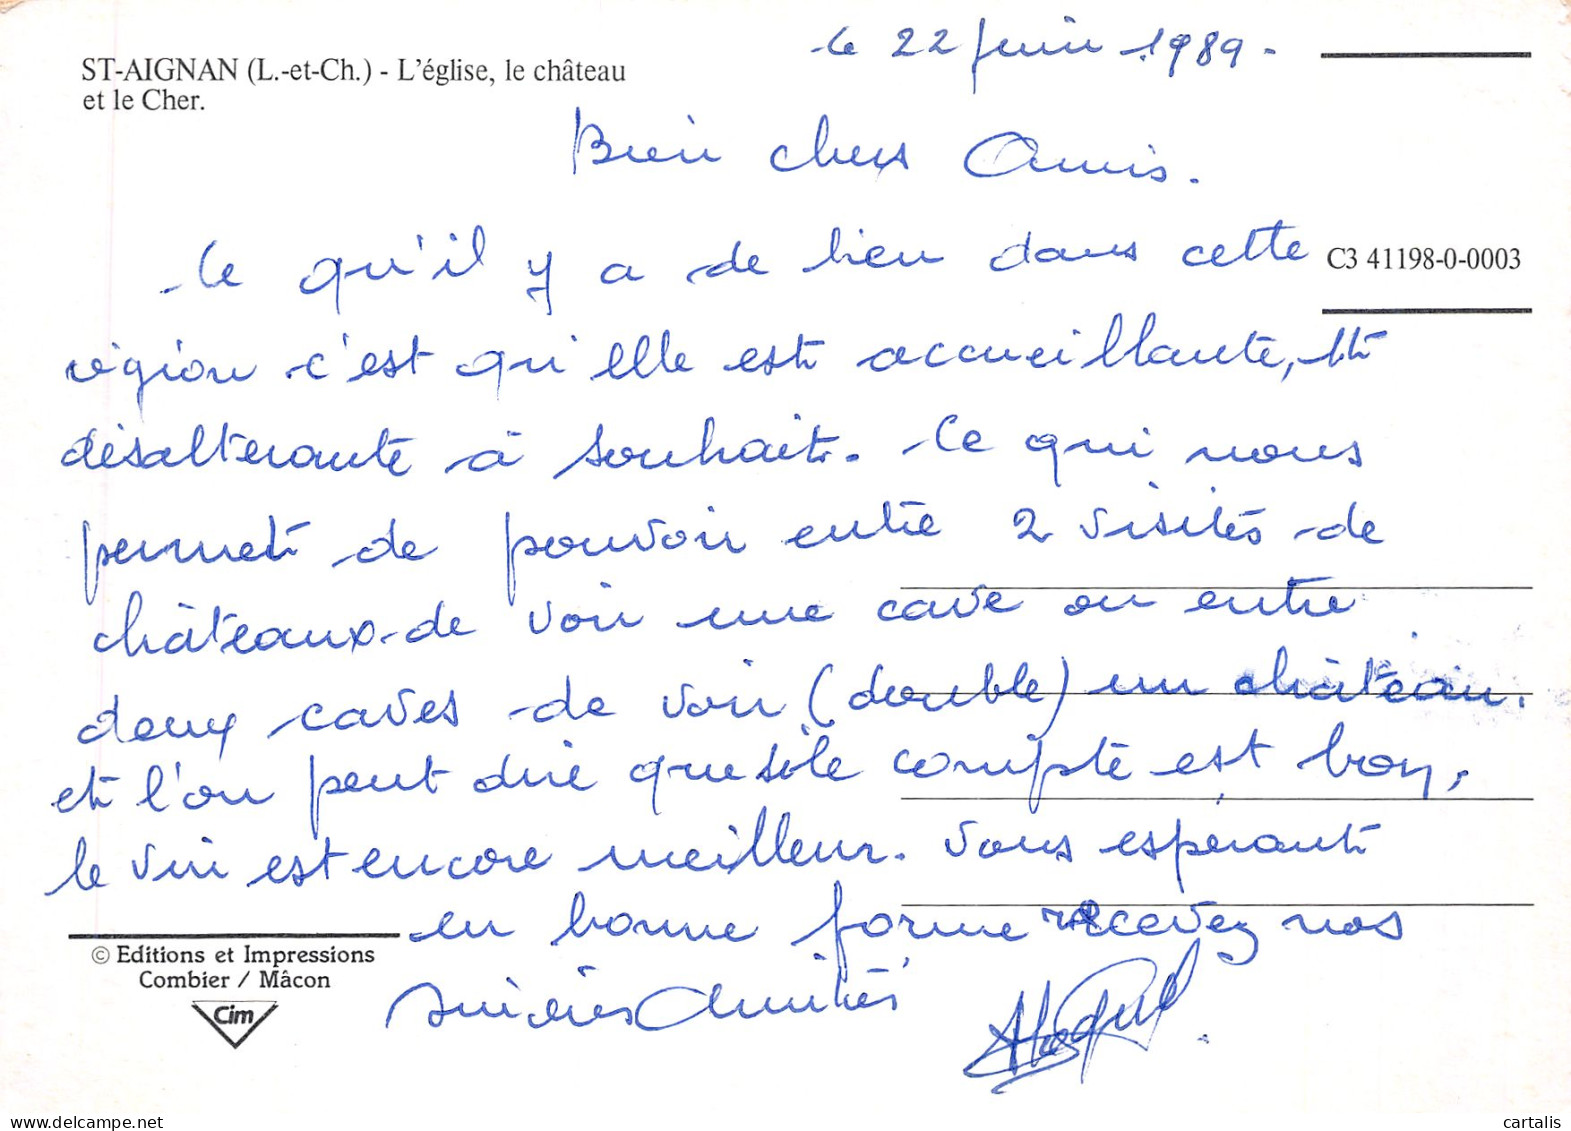 le 22 juin 1989 -
ST-AIGNAN (L.-et-Ch.) - L'église, le château
et le Cher.
Bien chers Amis.
Ce qu'il y a de bien dans cette
C3 41198-0-0003
région c'est qu'elle est accueillante, et
désaltérante à souhait. Ce qui nous
permet de pouvoir entre 2 visites de
châteaux de voir une cave ou entre
deux caves de voir (double) un château.
et l'on peut dire que si le compte est bon,
le vin est encore meilleur. Vous espérant
en bonne forme recevez nos
sincères Amitiés
© Editions et Impressions
Combier / Mâcon
Cim
www.delcampe.net
cartalis